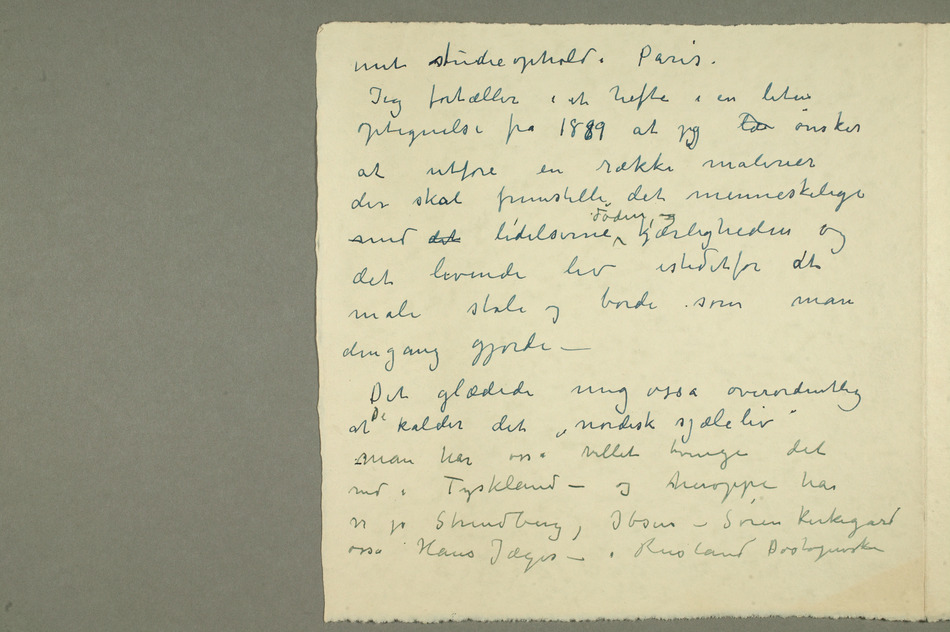 mit studieophold i Paris.
Jeg fortæller i et hefte i en liten
optegnelse fra 1889 at jeg ønsker
at utføre en række malerier
der skal fremstille det menneskelige
med det lidelserne, døden, og kjærligheden og
det levende liv istedetfor at
male stole og borde som man
dengang gjorde —
Det glædede mig osså overordentlig
at De kalder det „nordisk sjæleliv"
man har osså villet tvinge det
ind i Tyskland — og heroppe har
vi jo Strindberg, Ibsen – Søren Kirkegard
osså Hans Jæger — i Rusland Dostojewski